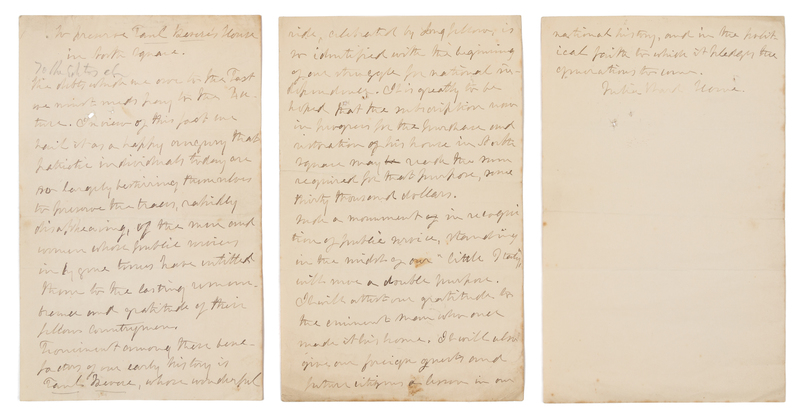 To preserve Paul Revere's House
in North Square.
To the Editor of
the debt which we owe to the Past
we must needs pay to the Fu-
ture. In view of this fact we
hail it as a happy augury that
patriotic individuals today are
so largely bestirring themselves
to preserve the traces, rapidly
disappearing, of the men and
women whose public services
in by gone times have entitled
them to the lasting remem-
brance and gratitude of their
fellow countrymen.
Prominent among these bene-
factors of our early history is
Paul Revere, whose wonderful
ride, celebrated by Longfellow, is
so identified with the beginning
of our struggle for national in-
dependency. It is greatly to be
hoped that the subscription now
in progress for the purchase and
restoration of his house in North
Square may reach the sum
required for that purpose, some
thirty thousand dollars.
Such a monument in recogni-
tion of public service, standing
in the midst of our "little Italy",
will serve a double purpose.
It will attest our gratitude to
the eminent man who once
made it his home. It will also
give our foreign guests and
future citizens a lesson in our
national history, and in the polit-
ical faith to which it pledges the
generations to come.
Julia Ward Howe.